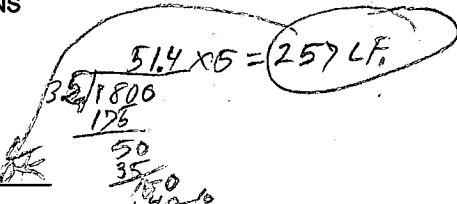 NS
51.4 x5 = 257 LF.
35 1800
175
50
35
150